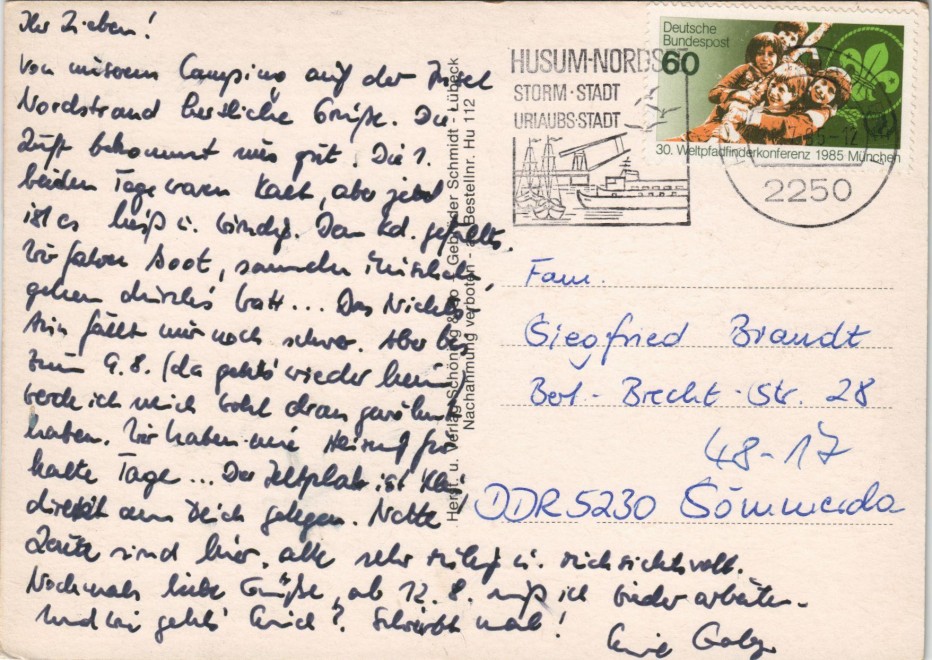 Ihr Lieben!
von unserem Camping auf der Insel
Nordstrand herzliche Grüße. Die
Luft bekommt uns gut. Die 1.
beiden Tage waren kalt, aber jetzt
ist es heiß u. windig. Den Kd. gefällts.
Wir fahren Boot, sammeln Muscheln,
gehen durchs Watt... Das Nichts-
tun fällt mir noch schwer. Aber bis
zum 9.8. (da gehts wieder heim)
werde ich mich wohl dran gewöhnt
haben. Wir haben eine Heizung für
kalte Tage... Der Zeltplatz ist klein,
direkt am Deich gelegen. Nette
Leute sind hier, alle sehr ruhig u. rücksichtsvoll.
Nochmals liebe Grüße, ab 12.8. muß ich wieder arbeiten.
Und wie gehts Euch? Schreibt mal!
Herst. u. Verlag Schöning & Co Gebrüder Schmidt - Lübeck
Nachahmung verboten - Bestellnr. Hu 112
HUSUM-NORDS
STORM·STADT
URLAUBS·STADT
Deutsche
Bundespost
60
30. Weltpfadfinderkonferenz 1985 München
2250
Fam.
Siegfried Brandt
Bert-Brecht-Str. 28
48-17
DDR 5230 Sömmerda